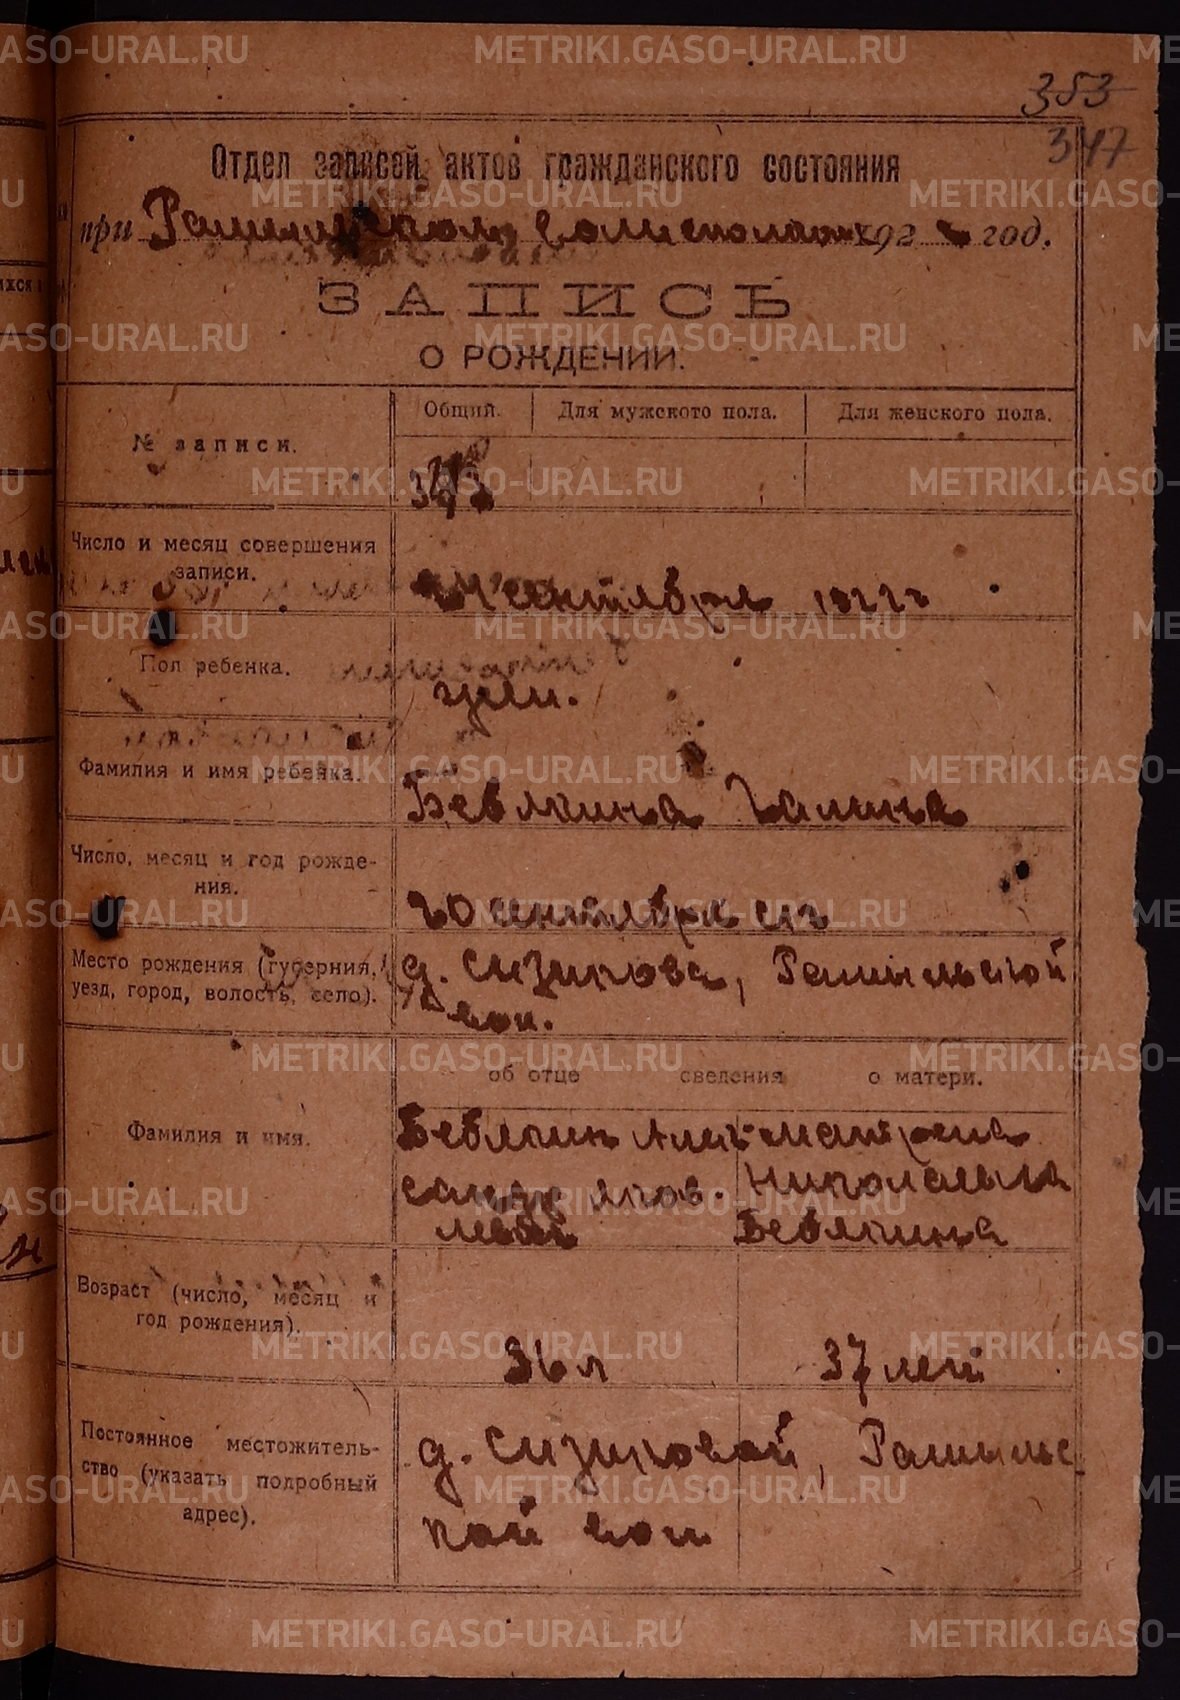 353
347
Отдел записей актов гражданского состояния
при волисполком 192 год.
ЗАПИСЬ
О РОЖДЕНИИ.
№ записи.
Общий.
Для мужского пола.
Для женского пола.
Число и месяц совершения
записи.
сентября 1922 г
Пол ребенка.
жен.
Фамилия и имя ребенка.
Бевлкина Галина
Число, месяц и год рожде-
ния.
20 сентября с/г
Место рождения (губерния,
уезд, город, волость, село).
д. Сизикова,
вол.
об отце сведения о матери.
Фамилия и имя.
Алек-
санд. Яков.
левич
Матрена
Николаевна
Возраст (число, месяц и
год рождения).
36 л
37 лет
Постоянное местожитель-
ство (указать подробный
адрес).
д. Сизиковой,
кой вол
METRIKI.GASO-URAL.RU